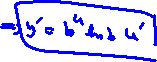 ⇒ y' = b^u ln b u'